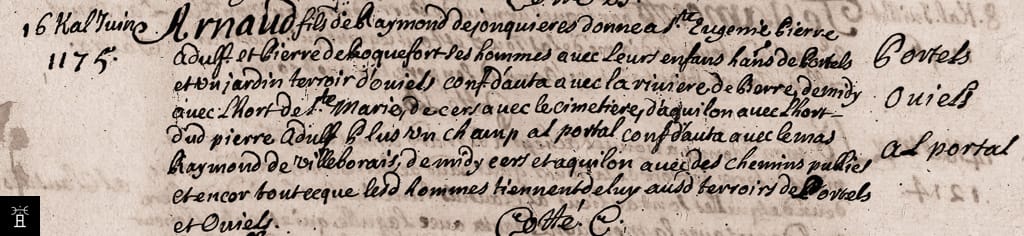 16 Kal Juin
1175.
Arnaud fils de Raymond de jonquieres donne a Ste Eugenie pierre
Adulf et pierre de Roquefort ses hommes avec leurs enfans hans de Portels
et un jardin terroir d'oviels conf. d'auta avec la riviere de Berre, de midy
avec l'hort de Ste Marie, de cers avec le cimetiere, d'aquilon avec l'hort
dud pierre Adulf Plus un champ al portal conf. d'auta avec le mas
Raymond de villeborais, de midy cers et aquilon avec des chemins publics
et encor tout ce que lesd hommes tiennent de luy ausd terroirs de Portels
et Oviels.
Cotté C.
Portels
Oviels
al portal